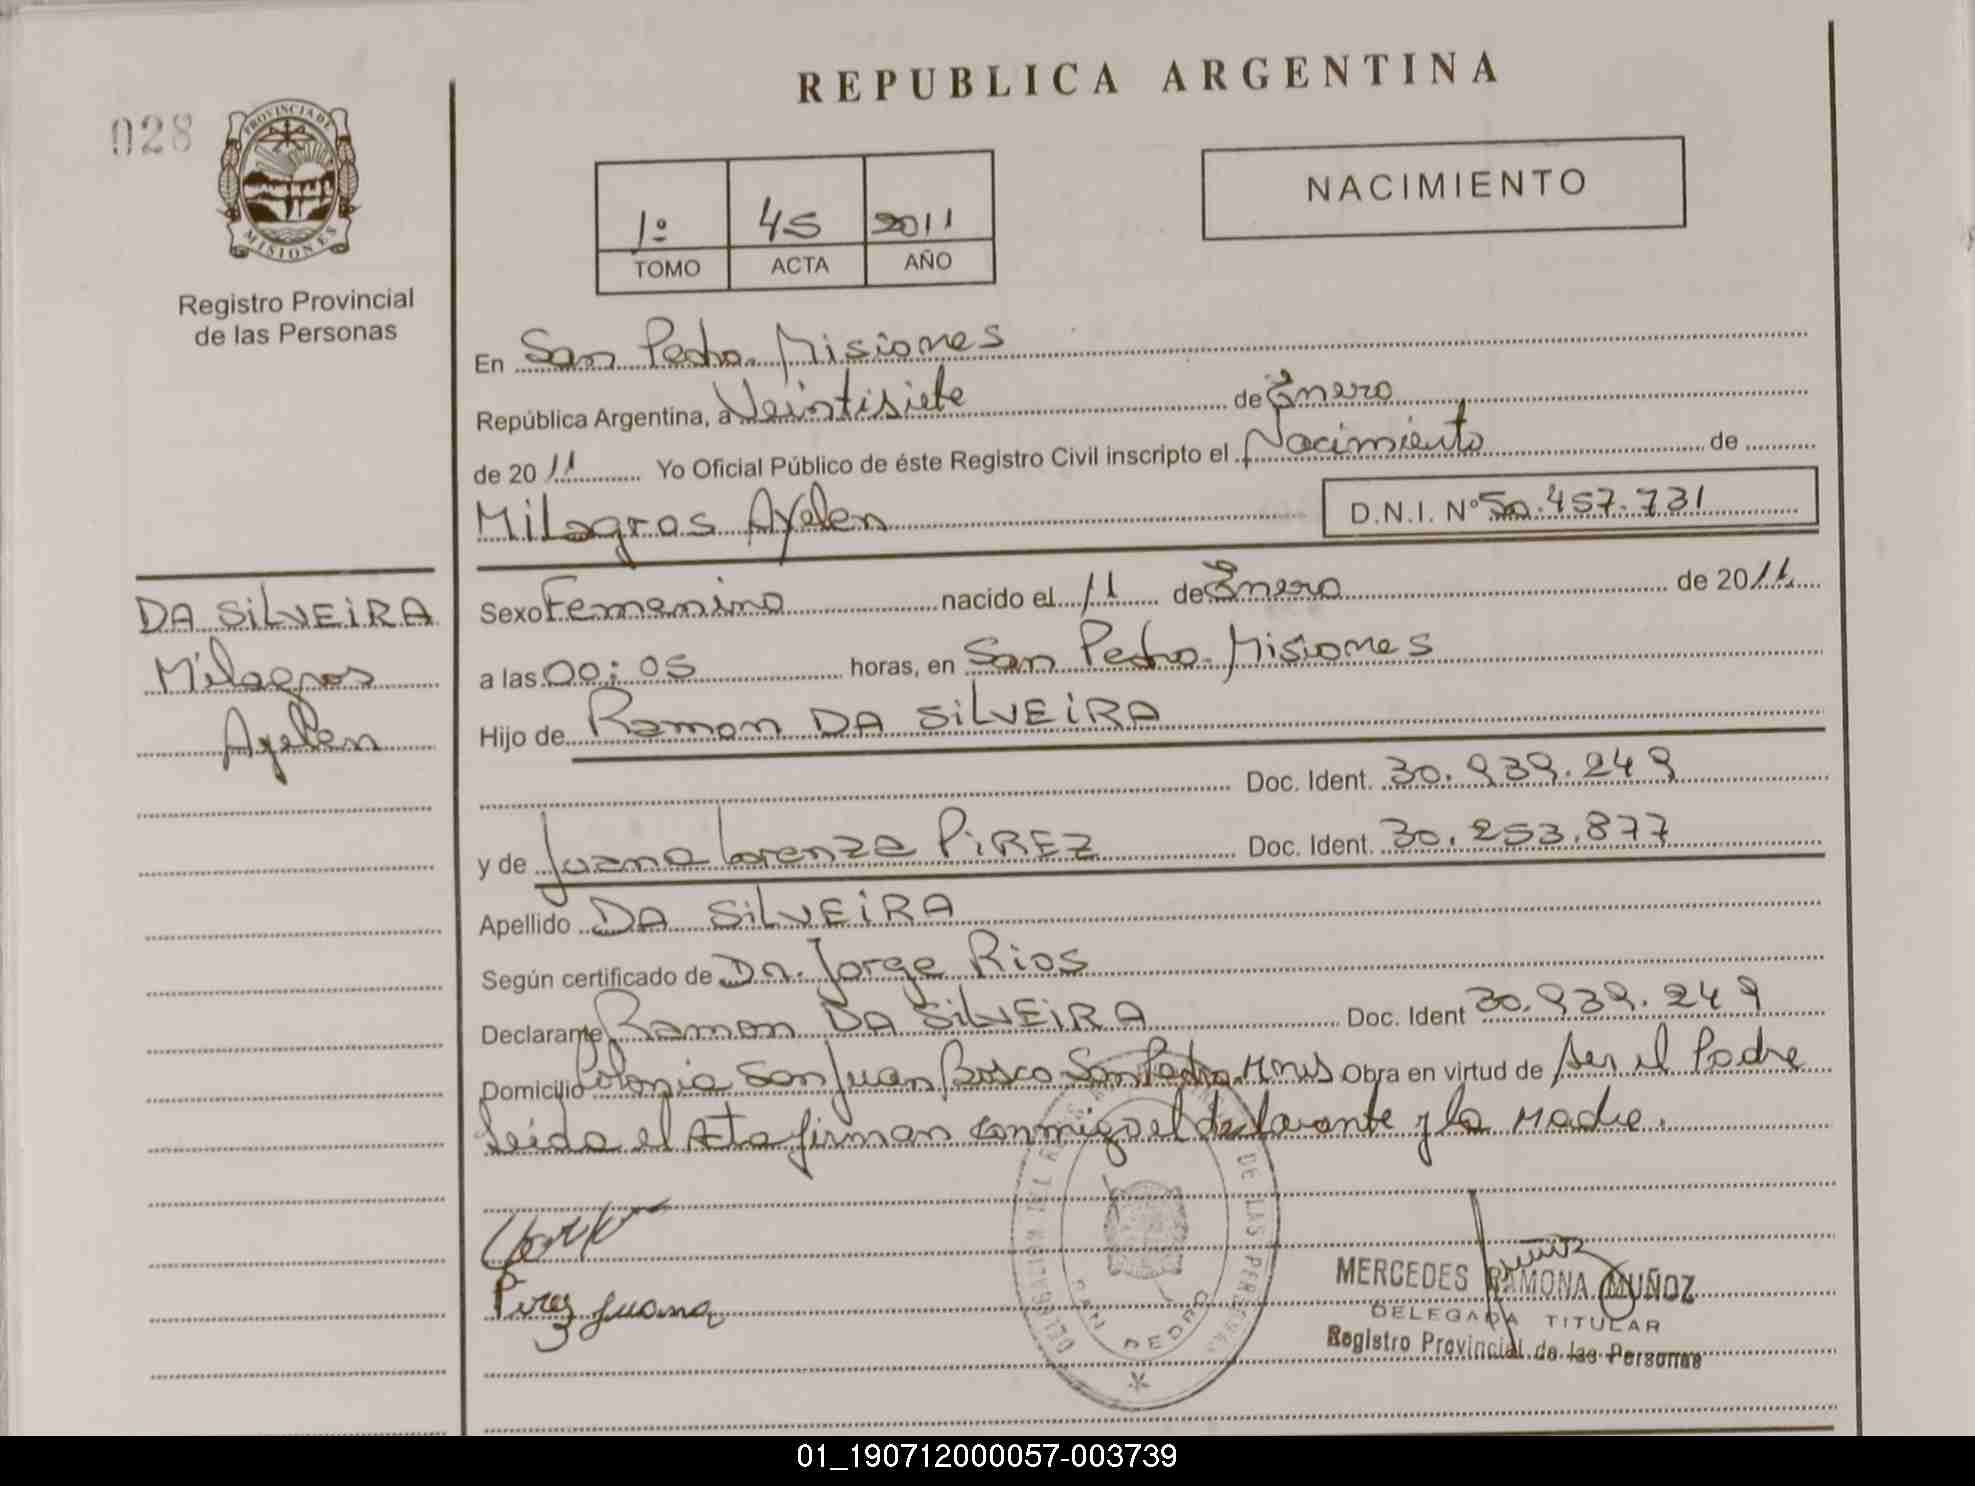 REPUBLICA ARGENTINA
028
PROVINCIA DE
MISIONES
Registro Provincial
de las Personas
1º 45 2011
TOMO ACTA AÑO
NACIMIENTO
En San Pedro. Misiones
República Argentina, a Veintisiete de Enero
de 20 11 Yo Oficial Público de éste Registro Civil inscripto el Nacimiento de
Milagros Ayelen D.N.I. Nº 50.457.731
DA SILVEIRA
Milagros
Ayelen
Sexo Femenino nacido el 11 de Enero de 20 11
a las 00:05 horas, en San Pedro. Misiones
Hijo de Ramon DA SILVEIRA
Doc. Ident. 30.939.249
y de Juana Lorenza PIREZ Doc. Ident. 30.253.877
Apellido DA SILVEIRA
Según certificado de Dn. Jorge Rios
Declarante Ramon DA SILVEIRA Doc. Ident 30.939.249
Domicilio Colonia San Juan Bosco San Pedro. Mnes Obra en virtud de ser el Padre
Leída el Acta firman conmigo el declarante y la Madre.
Pirez Juana
DELEGACION DEL REG. DE LAS PERSONAS
SAN PEDRO
MERCEDES RAMONA MUÑOZ
DELEGADA TITULAR
Registro Provincial de las Personas
01_190712000057-003739